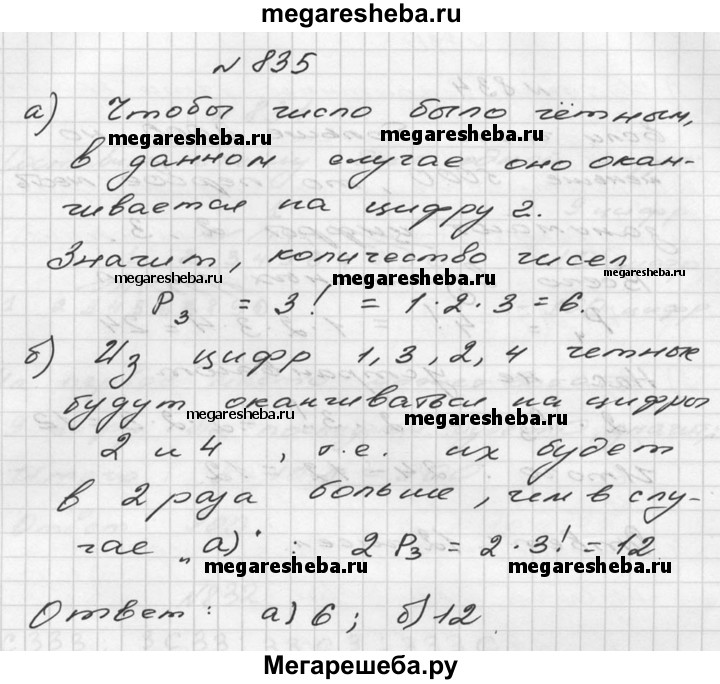 megaresheba.ru
№ 835
а) Чтобы число было чётным,
megaresheba.ru megaresheba.ru
в данном случае оно окан-
чивается на цифру 2.
Значит, количество чисел
megaresheba.ru megaresheba.ru megaresheba.ru
P₃ = 3! = 1·2·3 = 6.
б) Из цифр 1, 3, 2, 4 четные
будут оканчиваться на цифры
megaresheba.ru megaresheba.ru
2 и 4, т.е. их будет
в 2 раза больше, чем в слу-
чае „а)“: 2P₃ = 2·3! = 12
megaresheba.ru megaresheba.ru
Ответ: а) 6; б) 12.
Мегарешеба.ру